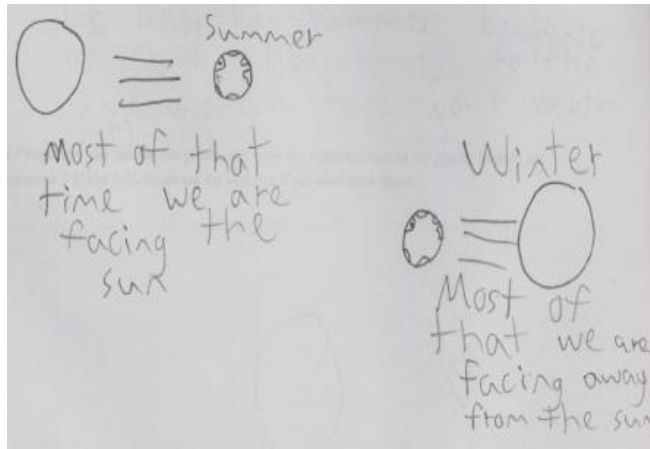 Summer
Most of that
time we are
facing the
sun
Winter
Most of
that we are
facing away
from the sun